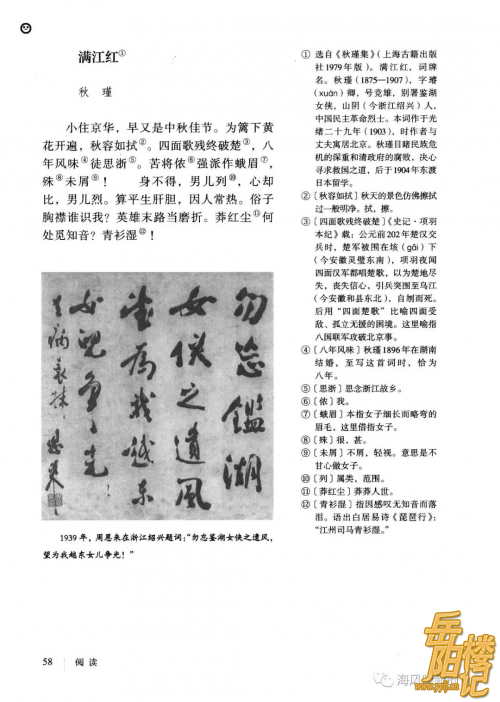 满江红①
秋瑾
小住京华，早又是中秋佳节。为篱下黄
花开遍，秋容如拭②。四面歌残终破楚③，八
年风味④徒思浙⑤。苦将侬⑥强派作蛾眉⑦，
殊⑧未屑⑨！ 身不得，男儿列⑩，心却
比，男儿烈。算平生肝胆，因人常热。俗子
胸襟谁识我？英雄末路当磨折。莽红尘⑪何
处觅知音？青衫湿⑫！
勿忘鉴湖
女侠之遗风
望为我越东
女儿争光
1939年，周恩来在浙江绍兴题词：“勿忘鉴湖女侠之遗风，
望为我越东女儿争光！”
① 选自《秋瑾集》（上海古籍出版
社1979年版）。满江红，词牌
名。秋瑾（1875—1907），字璿
（xuán）卿，号竞雄，别署鉴湖
女侠，山阴（今浙江绍兴）人，
中国民主革命烈士。本词作于光
绪二十九年（1903），时作者与
丈夫寓居北京。秋瑾目睹民族危
机的深重和清政府的腐败，决心
寻求救国之道，后于1904年东渡
日本留学。
②〔秋容如拭〕秋天的景色仿佛擦拭
过一般明净。拭，擦。
③〔四面歌残终破楚〕《史记·项羽
本纪》载：公元前202年楚汉交
兵时，楚军被围在垓（gāi）下
（今安徽灵璧东南），项羽夜闻
四面汉军都唱楚歌，以为楚地尽
失，丧失信心，引兵突围至乌江
（今安徽和县东北），自刎而死。
后用“四面楚歌”比喻四面受
敌、孤立无援的困境。这里喻指
八国联军攻破北京事。
④〔八年风味〕秋瑾1896年在湖南
结婚，至写这首词时，恰为
八年。
⑤〔思浙〕思念浙江故乡。
⑥〔侬〕我。
⑦〔蛾眉〕本指女子细长而略弯的
眉毛，这里借指女子。
⑧〔殊〕很，甚。
⑨〔未屑〕不屑，轻视。意思是不
甘心做女子。
⑩〔列〕属类，范围。
⑪〔莽红尘〕莽莽人世。
⑫〔青衫湿〕指因感叹无知音而落
泪。语出白居易诗《琵琶行》：
“江州司马青衫湿。”
58 阅读
岳阳楼记